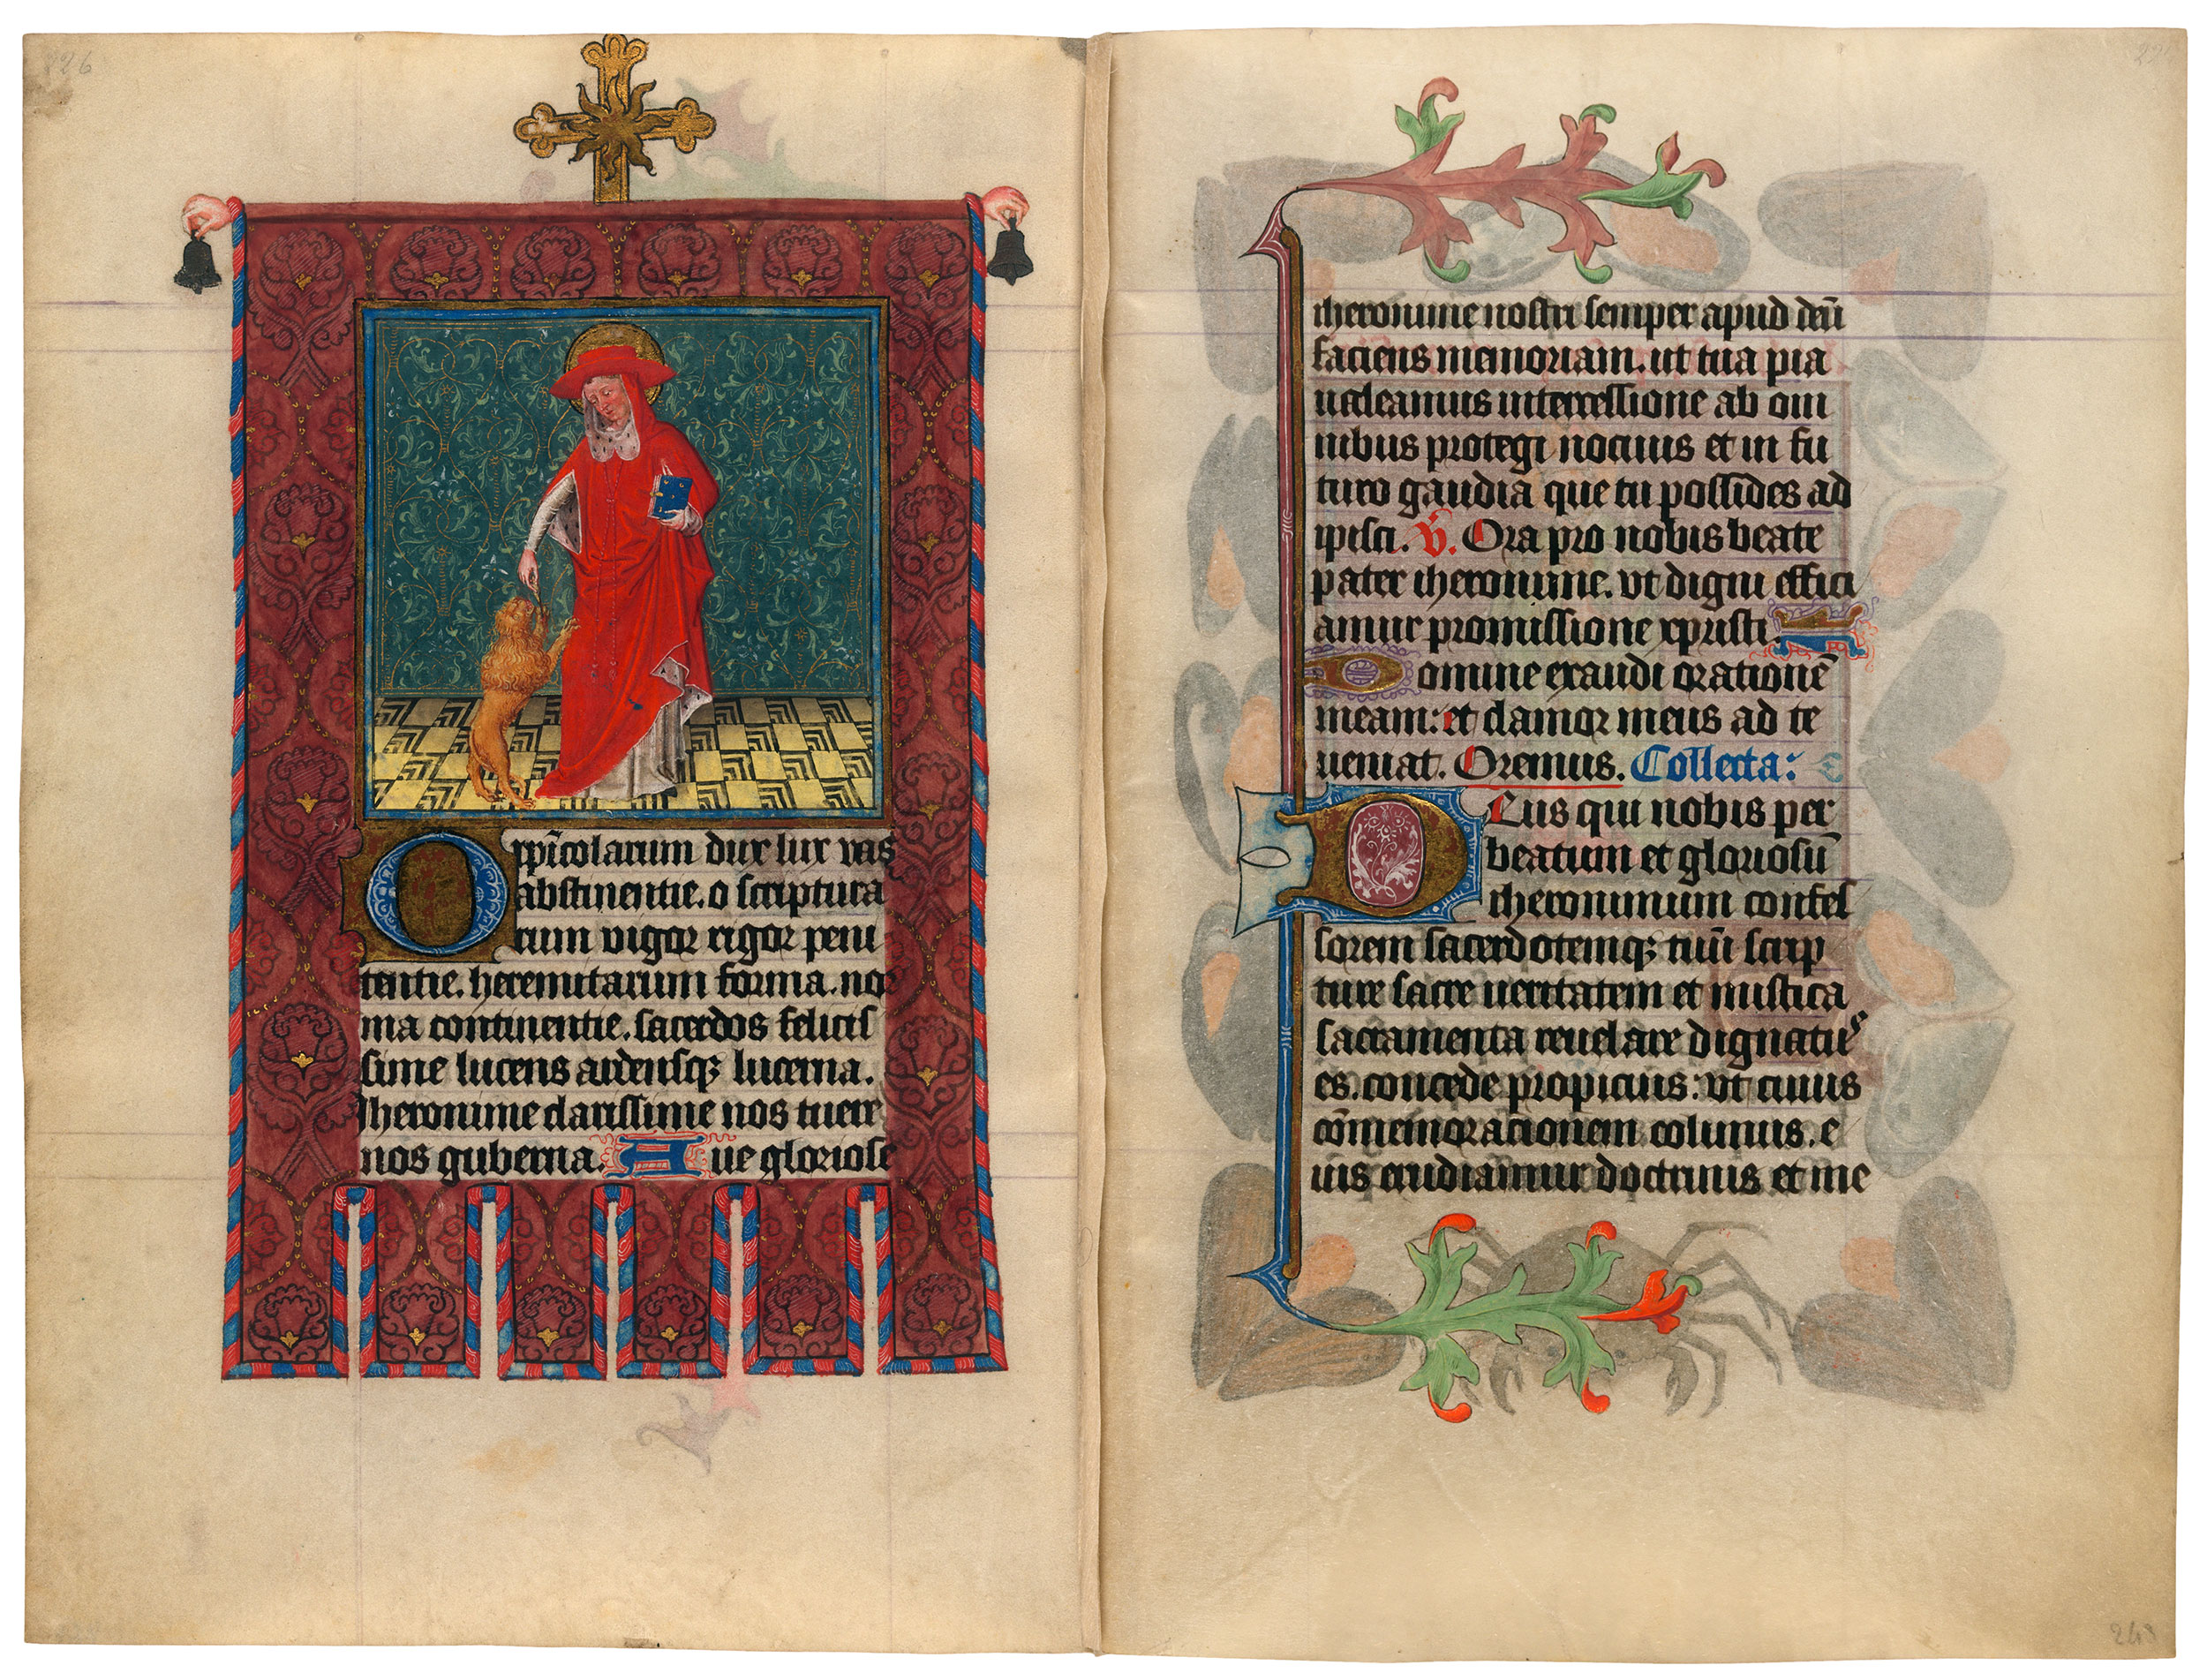 226
O xp̄icolarum dux lux vas
abstinentie. o scriptura
rum vigor rigor peni
tentie. heremitarum forma. nor
ma continentie. sacerdos felicis
sime lucens ardensqꝫ lucerna.
Iheronime clarissime nos tuere
nos guberna. Aue gloriose
iheronime nostri semper apud deū
faciens memoriam. ut tua pia
ualeamus intercessione ab om
nibus protegi nociuis et in fu
turo gaudia que tu possides ad
ipisci. V̄. Ora pro nobis beate
pater iheronime. vt digni effici
amur promissione xpristi.
Domine exaudi orationē
meam: et clamor meus ad te
ueniat. Oremus. Collecta:
DEus qui nobis per
beatum et gloriosū
iheronimum confes
sorem sacerdotemqꝫ tuū scrip
ture sacre ueritatem et mistica
sacramenta reuelare dignatus
es. concede propicius: vt cuius
cōmemoracionem colimus. e
ius erudiamur doctrinis et me
243